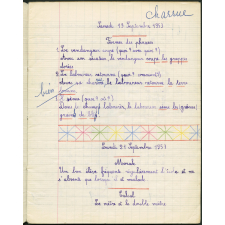 charrue
Samedi 19 Septembre 1953
Formez des phrases
1° Le vendangeur coupe (quoi? avec quoi?)
Avec son sécateur, le vendangeur coupe les grappes
dorées
2° Le laboureur retourne (quoi? comment?)
Avec sa charrue, le laboureur retourne la terre
bien
3° sème (quoi? où?)
Dans le champ labouré, le laboureur sème les
grains de blé
Lundi 21 Septembre 1953
Morale
Un bon élève fréquente régulièrement l'école et ne
s'absente que lorsqu'il est malade
Calcul
Le mètre et le double mètre